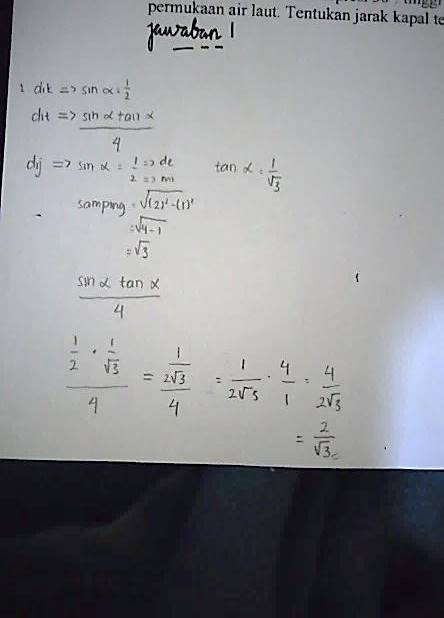 permukaan air laut. Tentukan jarak kapal te
jawaban 1
1 dik => sin α = 1/2
dit => sin α tan α / 4
dij => sin α = 1/2 => de => mi tan α = 1/√3
samping = √(2)² - (1)²
= √4 - 1
= √3
sin α tan α / 4
1/2 · 1/√3 / 4 = 1/2√3 / 4 = 1/2√3 · 4/1 = 4/2√3
= 2/√3